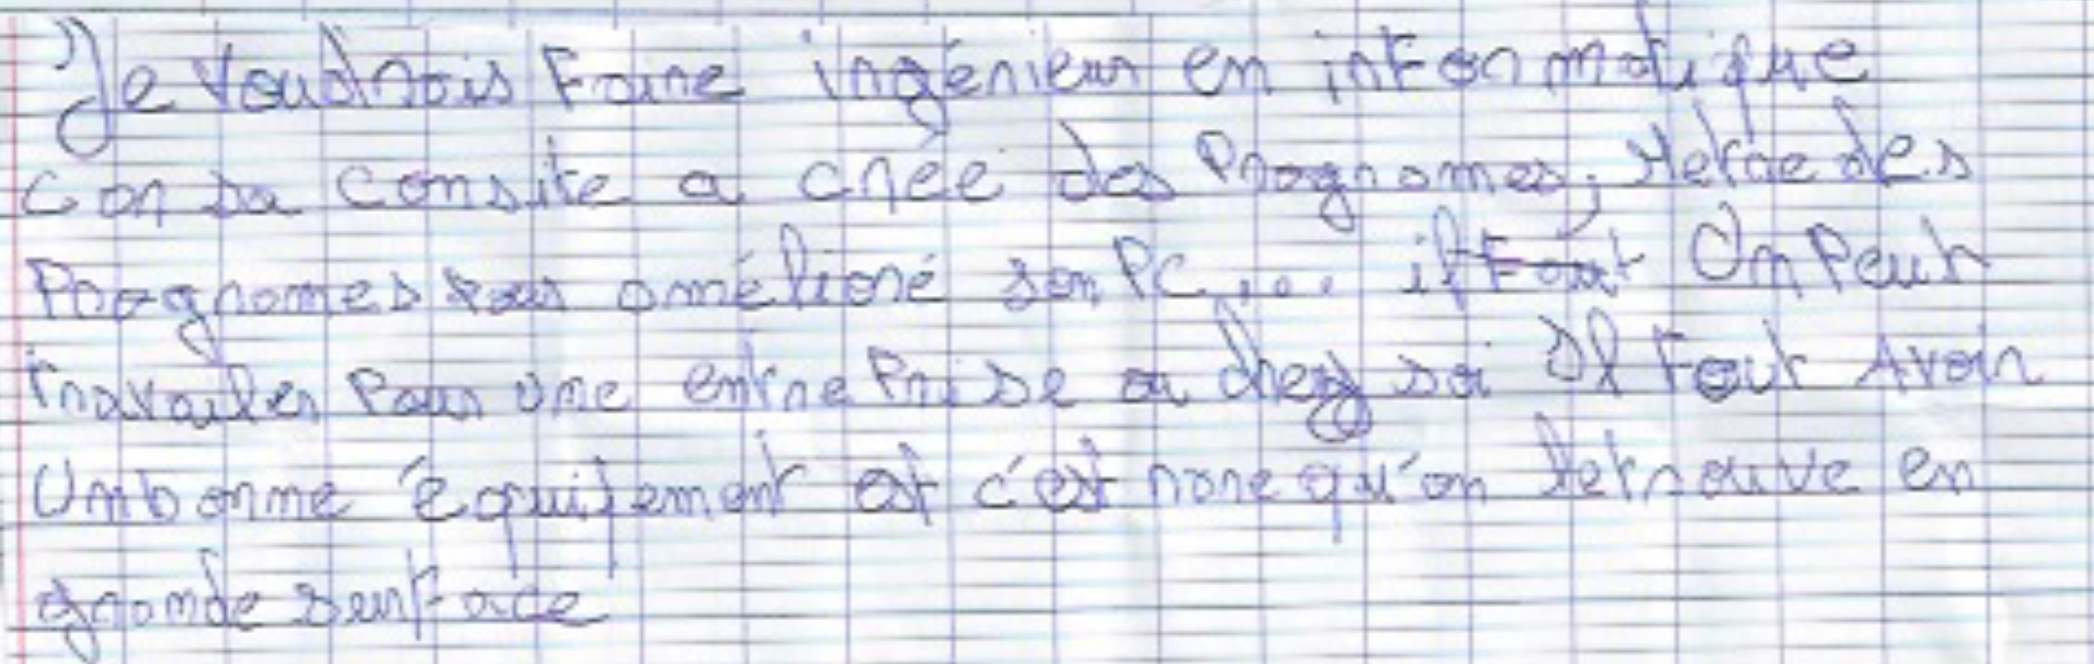 Je voudrais Faire ingénieur en informatique
car sa consite a créé des Programes, Metre des
Programes pour amélioré son PC ... il Faut On Peut
travailler Pour une entre Prise ou chez soi Il Faut Avoir
Un bonne équipement et c'est rare qu'on le trouve en
grande surface